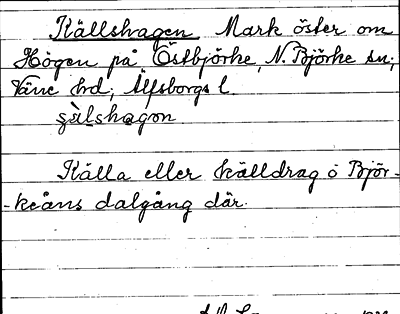 Källshagen Mark öster om
Högen på Östbjörke, N. Björke sn;
Väne hd; Älfsborgs l
Källa eller källdrag ö Björ-
-keåns dalgång där.